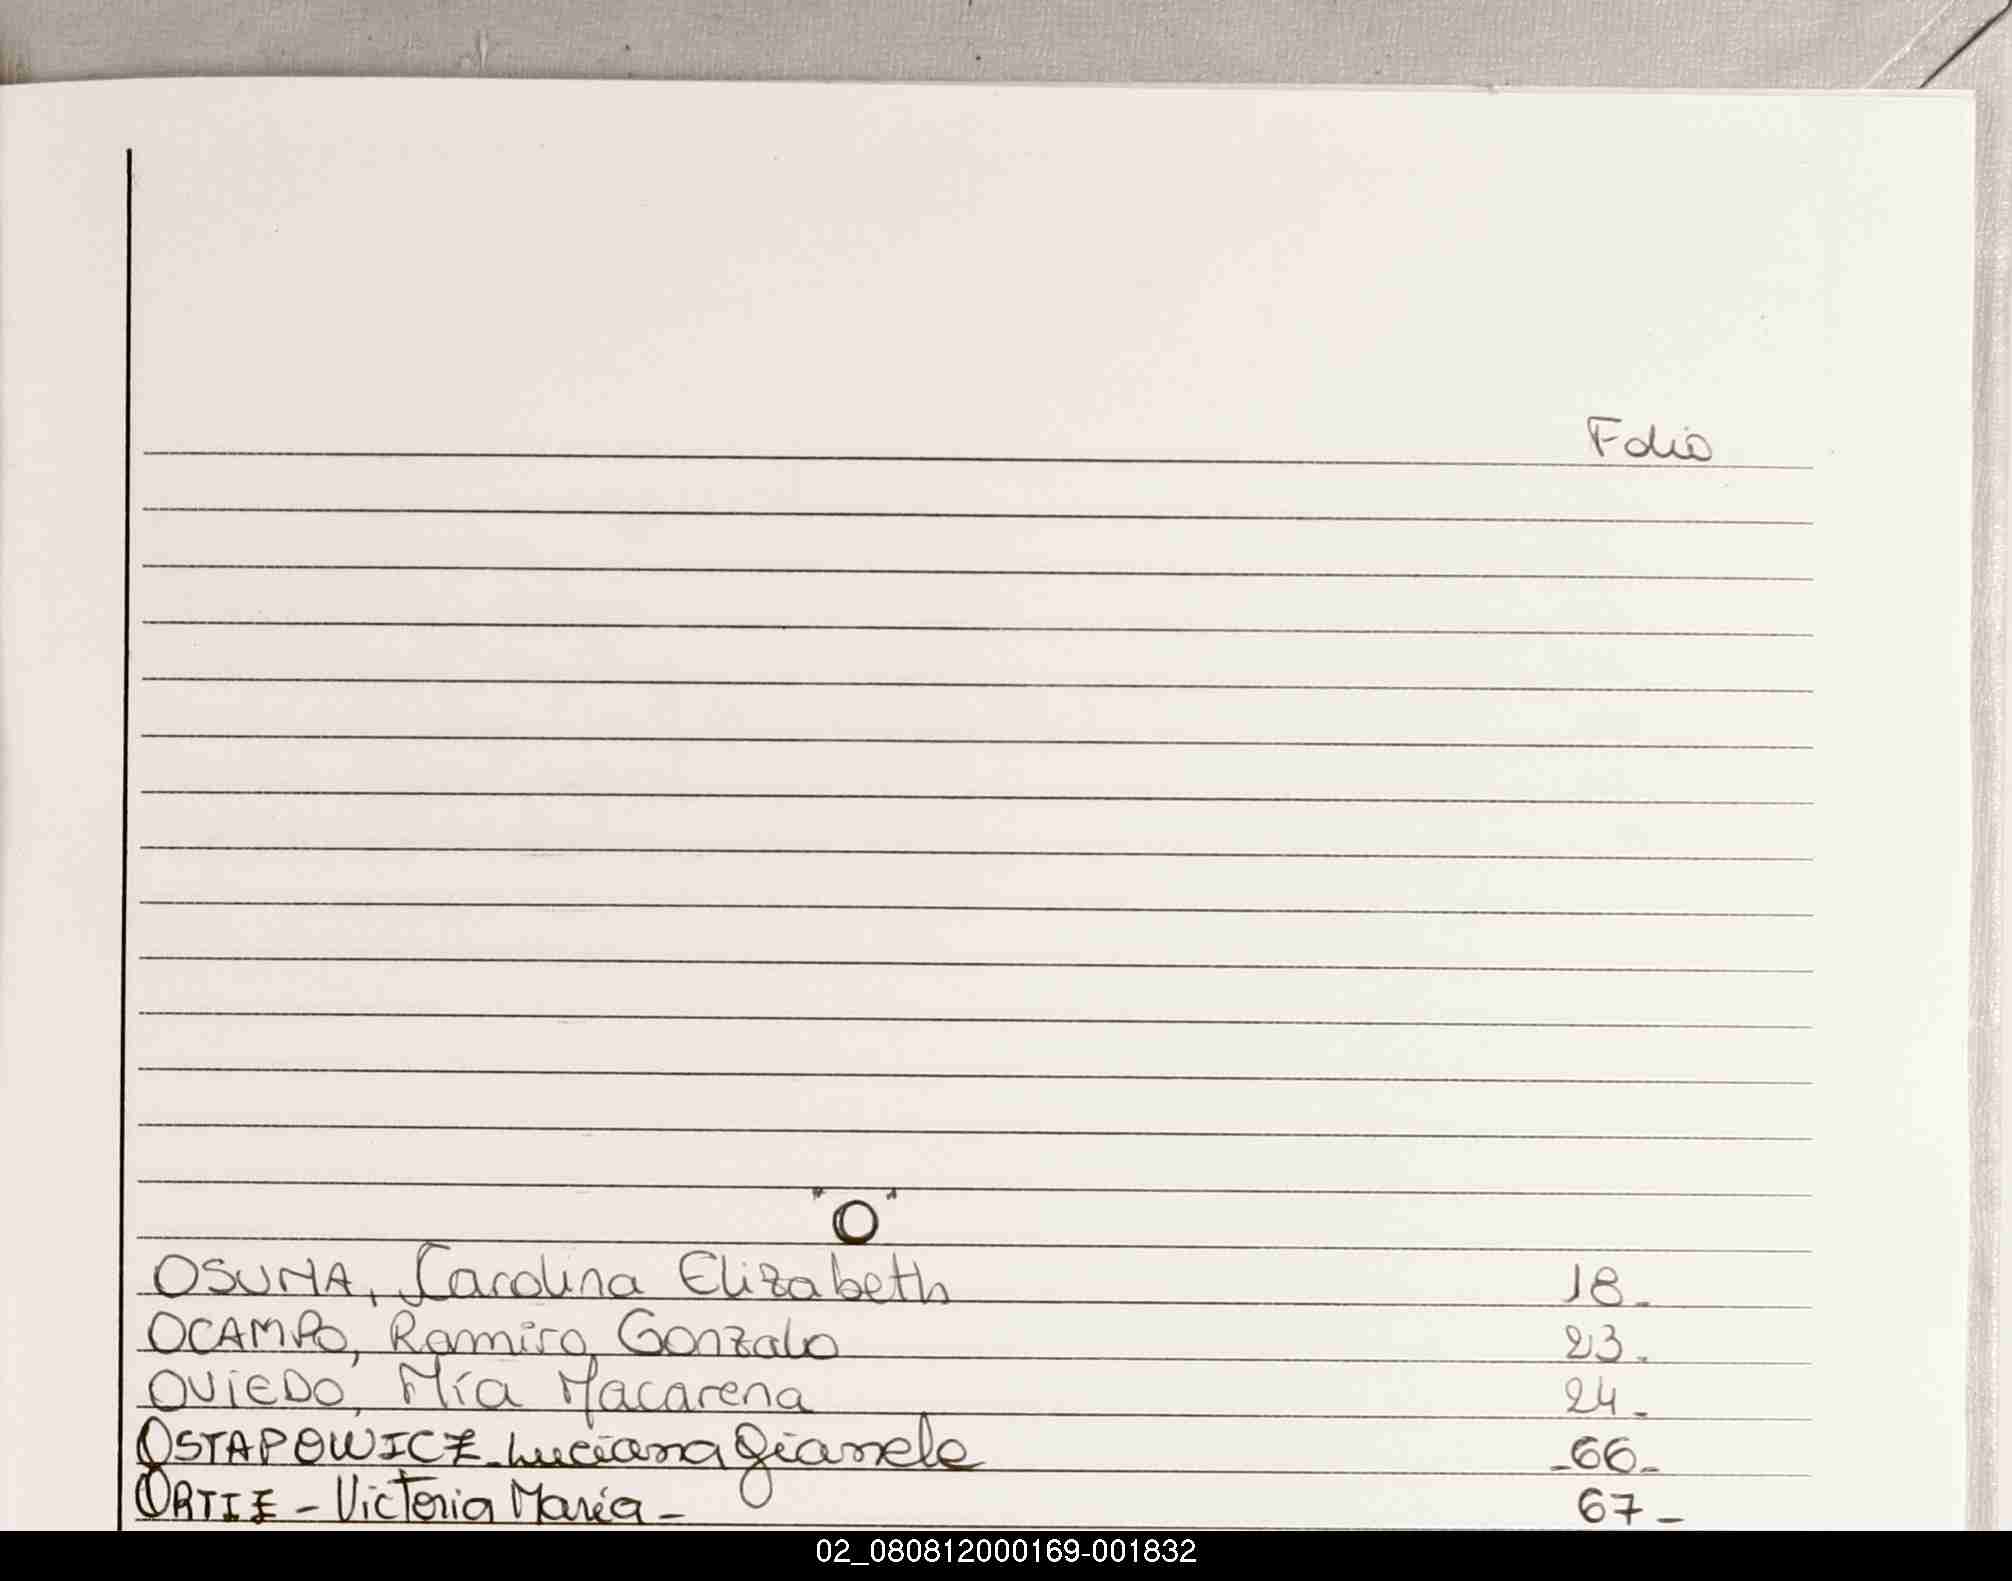 Folio
"O"
OSUNA, Carolina Elizabeth 18-
OCAMPO, Ramiro Gonzalo 23-
OVIEDO, Mía Macarena 24-
OSTAPOWICZ - Luciana Gianela -66-
ORTIZ - Victoria María - 67-
02_080812000169-001832